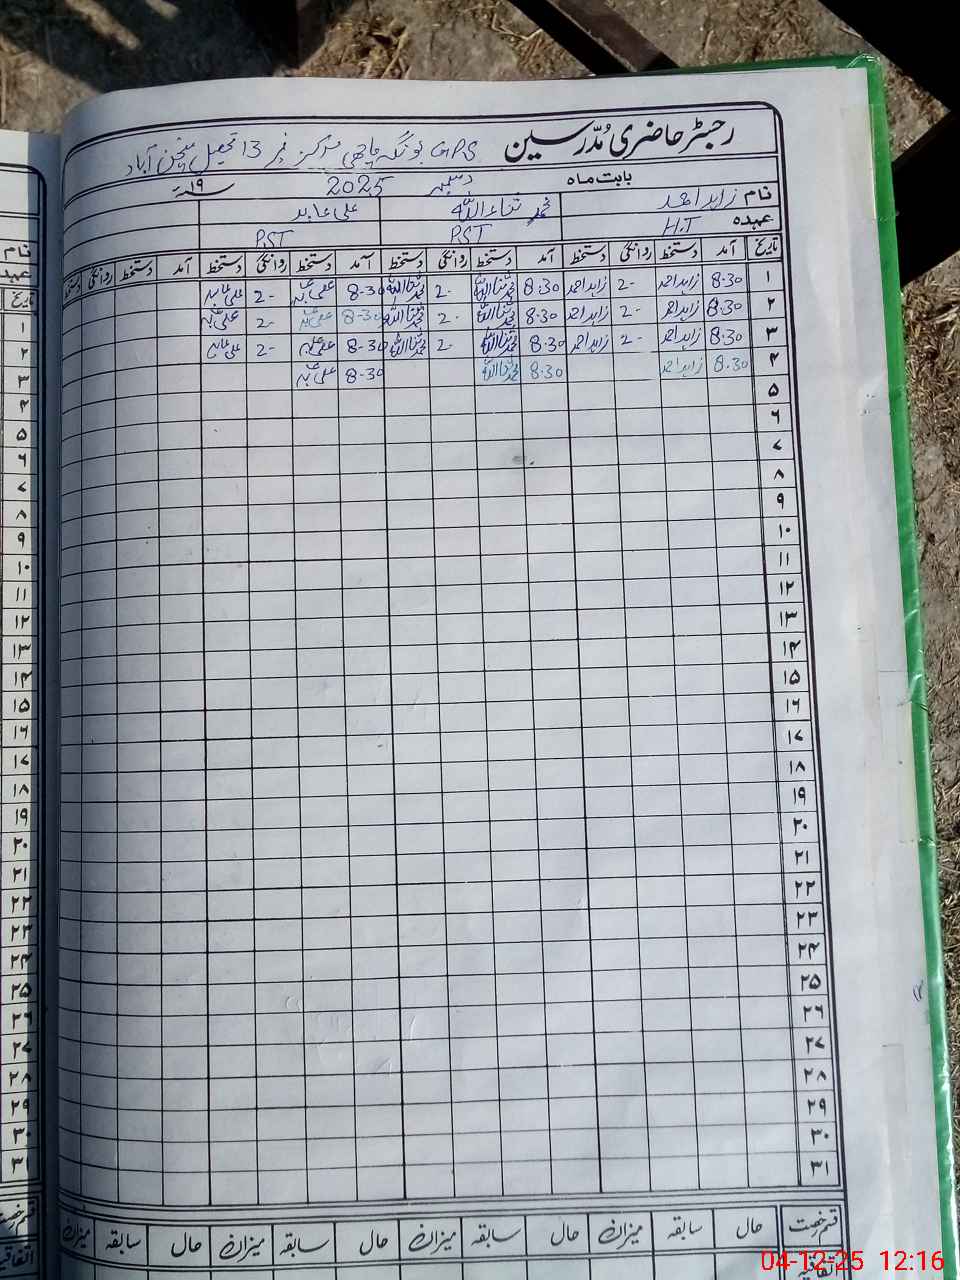 رجسٹر حاضری مُدّرسین GPS بونگہ چاچی مرکز نمبر 13 تحصیل منچن آباد
بابت ماہ دسمبر 2025 ۱۹ء
نام زاہد احمد محمد ثناءاللہ علی عابد
عہدہ H.T PST PST
تاریخ آمد دستخط روانگی دستخط آمد دستخط روانگی دستخط آمد دستخط روانگی دستخط آمد دستخط روانگی دستخط
۱ 8.30 زاہد احمد 2- زاہد احمد 8.30 محمد ثناءاللہ 2- محمد ثناءاللہ 8-30 علی عابد 2- علی عابد
۲ 8.30 زاہد احمد 2- زاہد احمد 8.30 محمد ثناءاللہ 2- محمد ثناءاللہ 8-30 علی عابد 2- علی عابد
۳ 8.30 زاہد احمد 2- زاہد احمد 8.30 محمد ثناءاللہ 2- محمد ثناءاللہ 8-30 علی عابد 2- علی عابد
۴ 8.30 زاہد احمد 8.30 محمد ثناءاللہ 8-30 علی عابد
۵
۶
۷
۸
۹
۱۰
۱۱
۱۲
۱۳
۱۴
۱۵
۱۶
۱۷
۱۸
۱۹
۲۰
۲۱
۲۲
۲۳
۲۴
۲۵
۲۶
۲۷
۲۸
۲۹
۳۰
۳۱
قسم رخصت حال سابقہ میزان حال سابقہ میزان حال سابقہ میزان حال سابقہ میزان
اتفاقیہ
نام
عہدہ
تاریخ
۱
۲
۳
۴
۵
۶
۷
۸
۹
۱۰
۱۱
۱۲
۱۳
۱۴
۱۵
۱۶
۱۷
۱۸
۱۹
۲۰
۲۱
۲۲
۲۳
۲۴
۲۵
۲۶
۲۷
۲۸
۲۹
۳۰
۳۱
قسم رخصت
اتفاقیہ
04-12-25 12:16